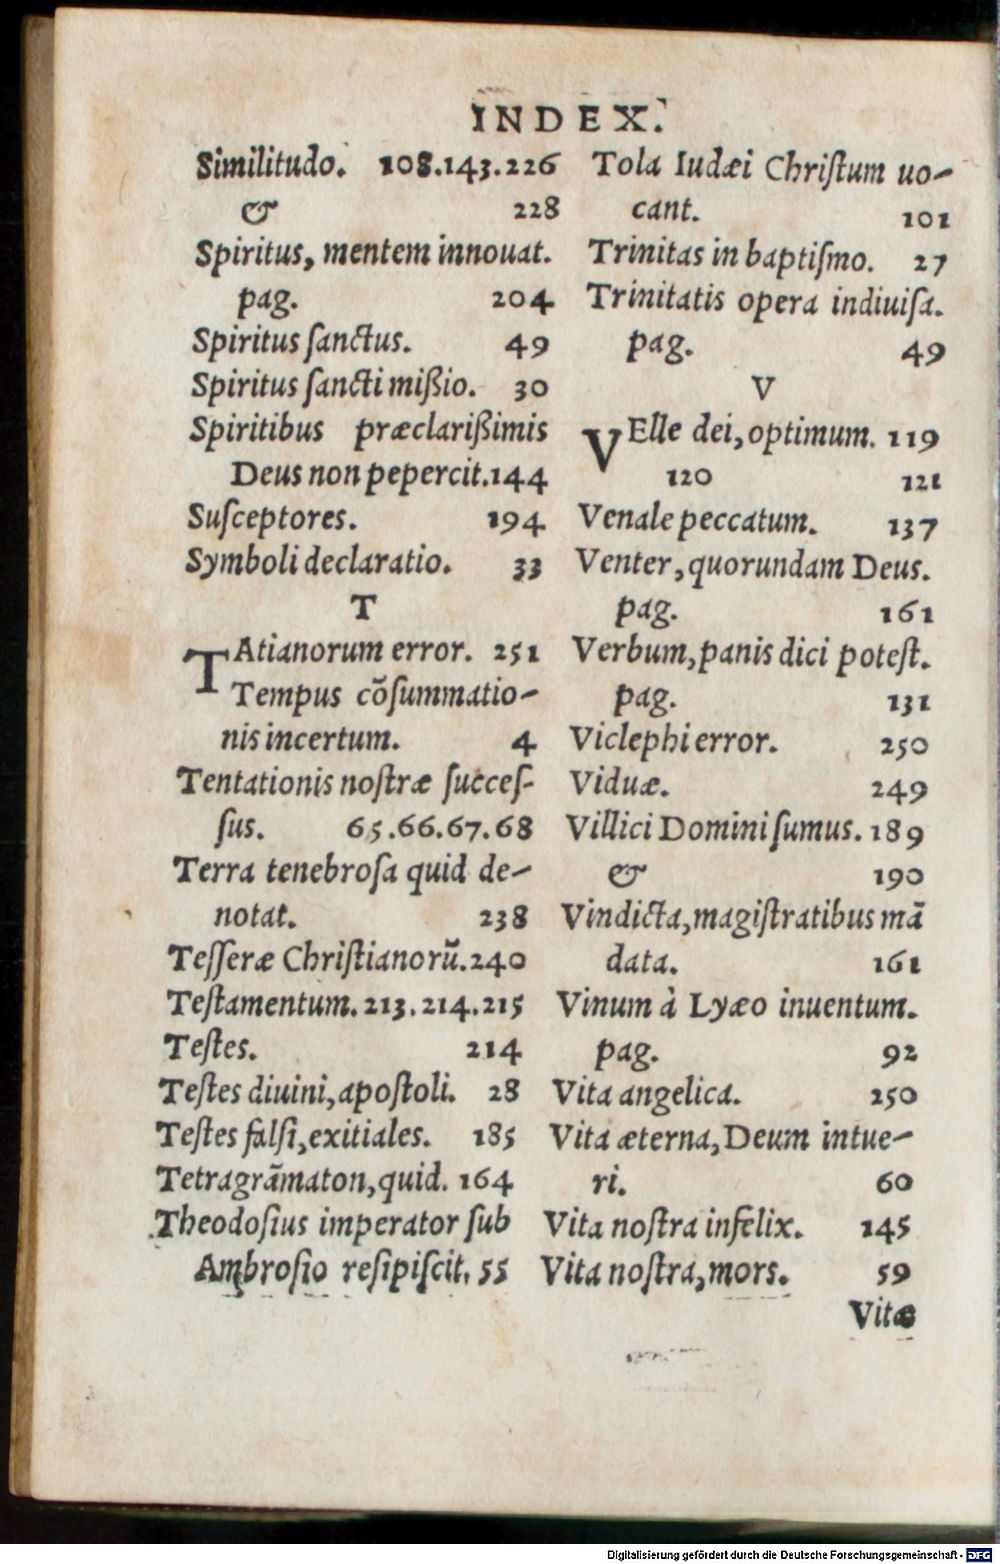 INDEX.
Similitudo. 108.143.226
& 228
Spiritus, mentem innouat.
pag. 204
Spiritus ſanctus. 49
Spiritus ſancti mißio. 30
Spiritibus præclarißimis
Deus non pepercit. 144
Suſceptores. 194
Symboli declaratio. 33
T
TAtianorum error. 251
Tempus cōſummatio-
nis incertum. 4
Tentationis noſtræ ſucceſ-
ſus. 65.66.67.68
Terra tenebroſa quid de-
notat. 238
Teſſeræ Chriſtianorū. 240
Teſtamentum. 213.214.215
Teſtes. 214
Teſtes diuini, apoſtoli. 28
Teſtes falſi, exitiales. 185
Tetragrāmaton, quid. 164
Theodoſius imperator ſub
Ambroſio reſipiſcit. 55
Tola Iudæi Chriſtum uo-
cant. 101
Trinitas in baptiſmo. 27
Trinitatis opera indiuiſa.
pag. 49
V
VElle dei, optimum. 119
120 121
Venale peccatum. 137
Venter, quorundam Deus.
pag. 161
Verbum, panis dici poteſt.
pag. 131
Viclephi error. 250
Viduæ. 249
Villici Domini ſumus. 189
& 190
Vindicta, magiſtratibus mā
data. 161
Vinum à Lyæo inuentum.
pag. 92
Vita angelica. 250
Vita æterna, Deum intue-
ri. 60
Vita noſtra infelix. 145
Vita noſtra, mors. 59
Vitæ
Digitalisierung gefördert durch die Deutsche Forschungsgemeinschaft - DFG